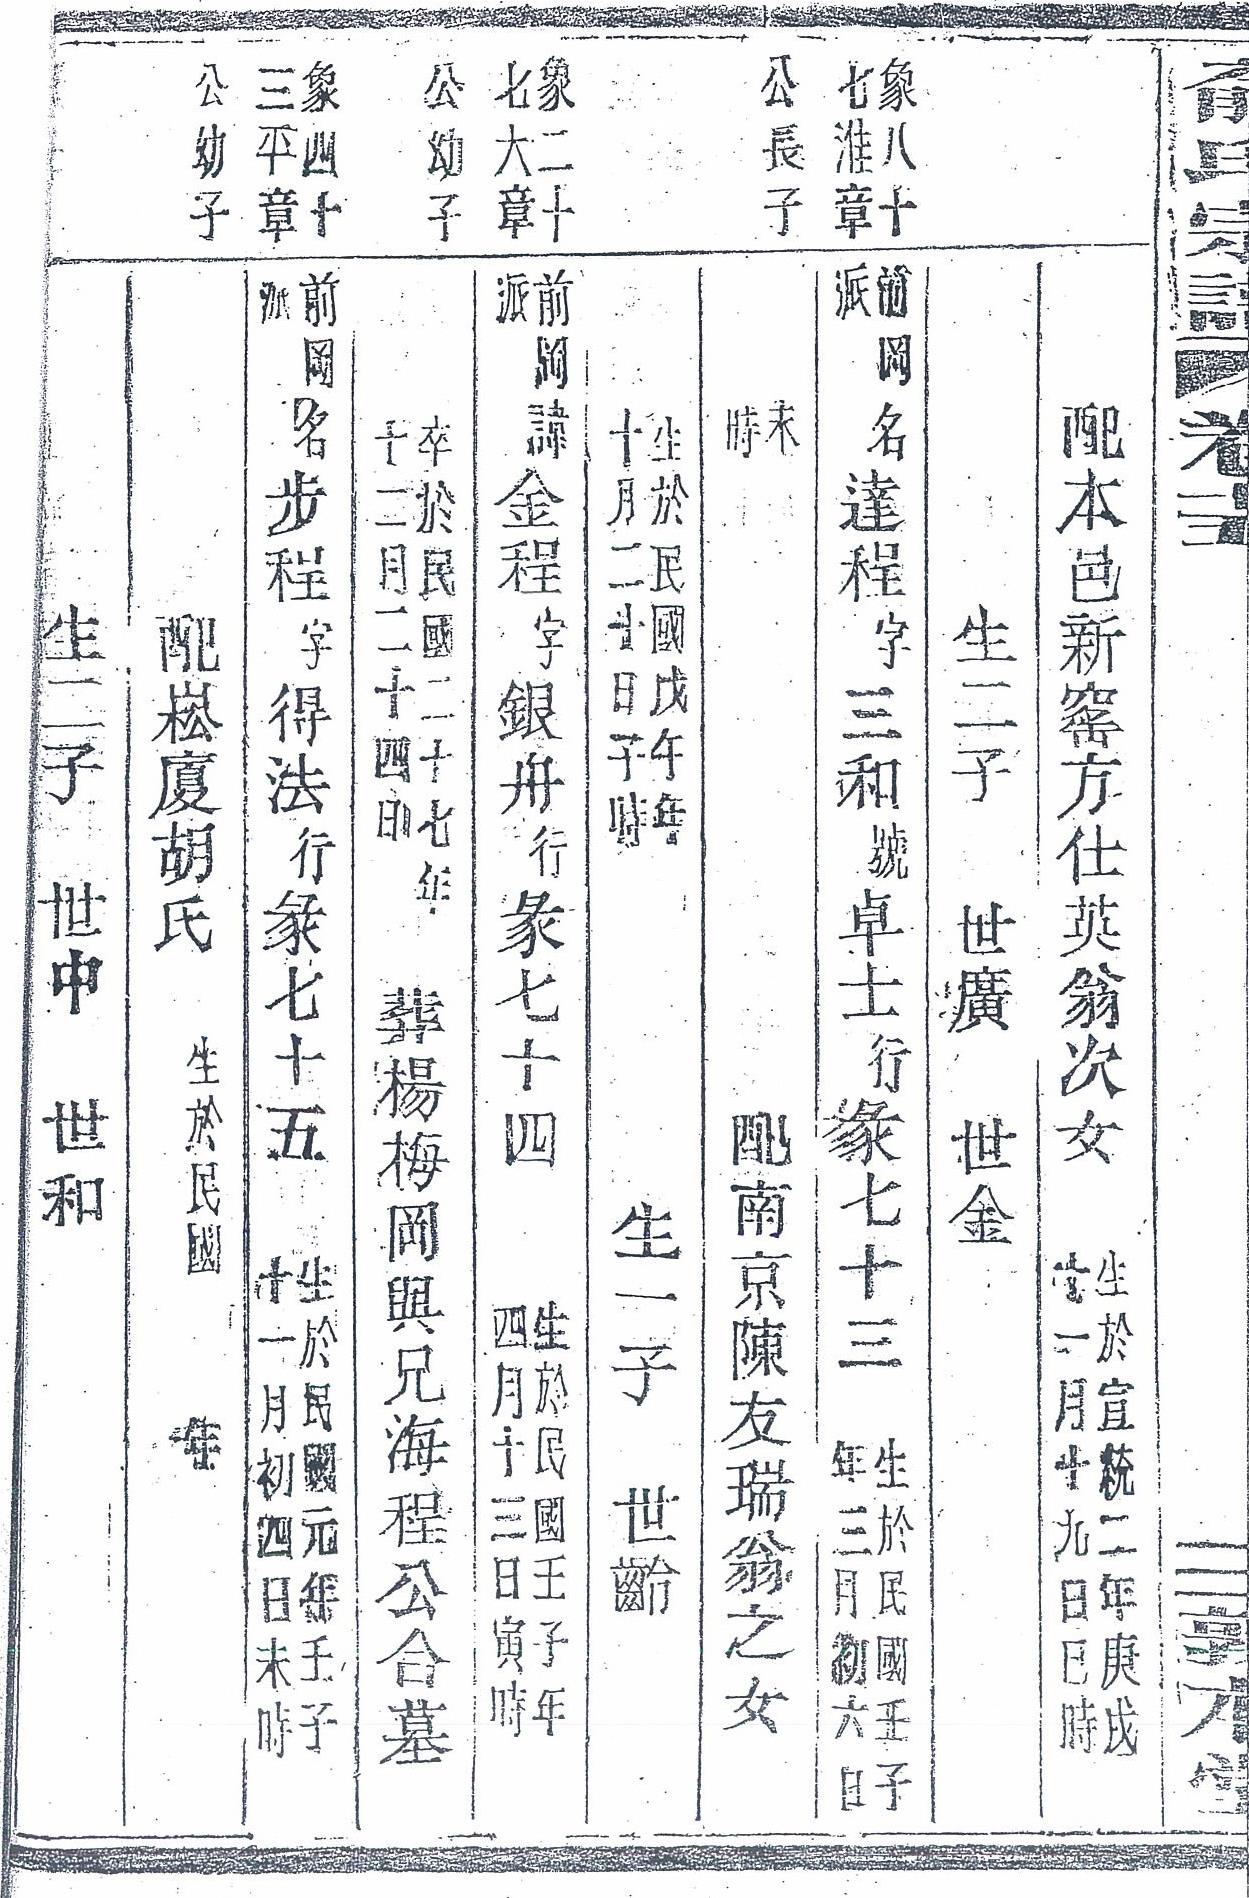 俞氏宗譜
卷三
配本邑新窰方仕英翁次女 生於宣統二年庚戌
十一月十九日巳時
生二子 世廣 世金
象八十
七淮章
公長子
前岡
派
名達程字三和號卓士行彖七十三 生於民國壬子
年三月初六日
未
時
配南京陳友瑞翁之女
生於民國戊午年
十月二廿日子時
生一子 世齡
象二十
七六章
公幼子
前岡
派
諱金程字銀舟行彖七十四 生於民國壬子年
四月十三日寅時
卒於民國二十七年
十二月二十四日
葬楊梅岡與兄海程公合墓
象四十
三平章
公幼子
前岡
派
名步程字得法行彖七十五 生於民國元年壬子
十一月初四日未時
配崧廈胡氏 生於民國 年
生二子 世中 世和